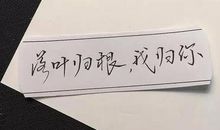 落叶归根，我归你